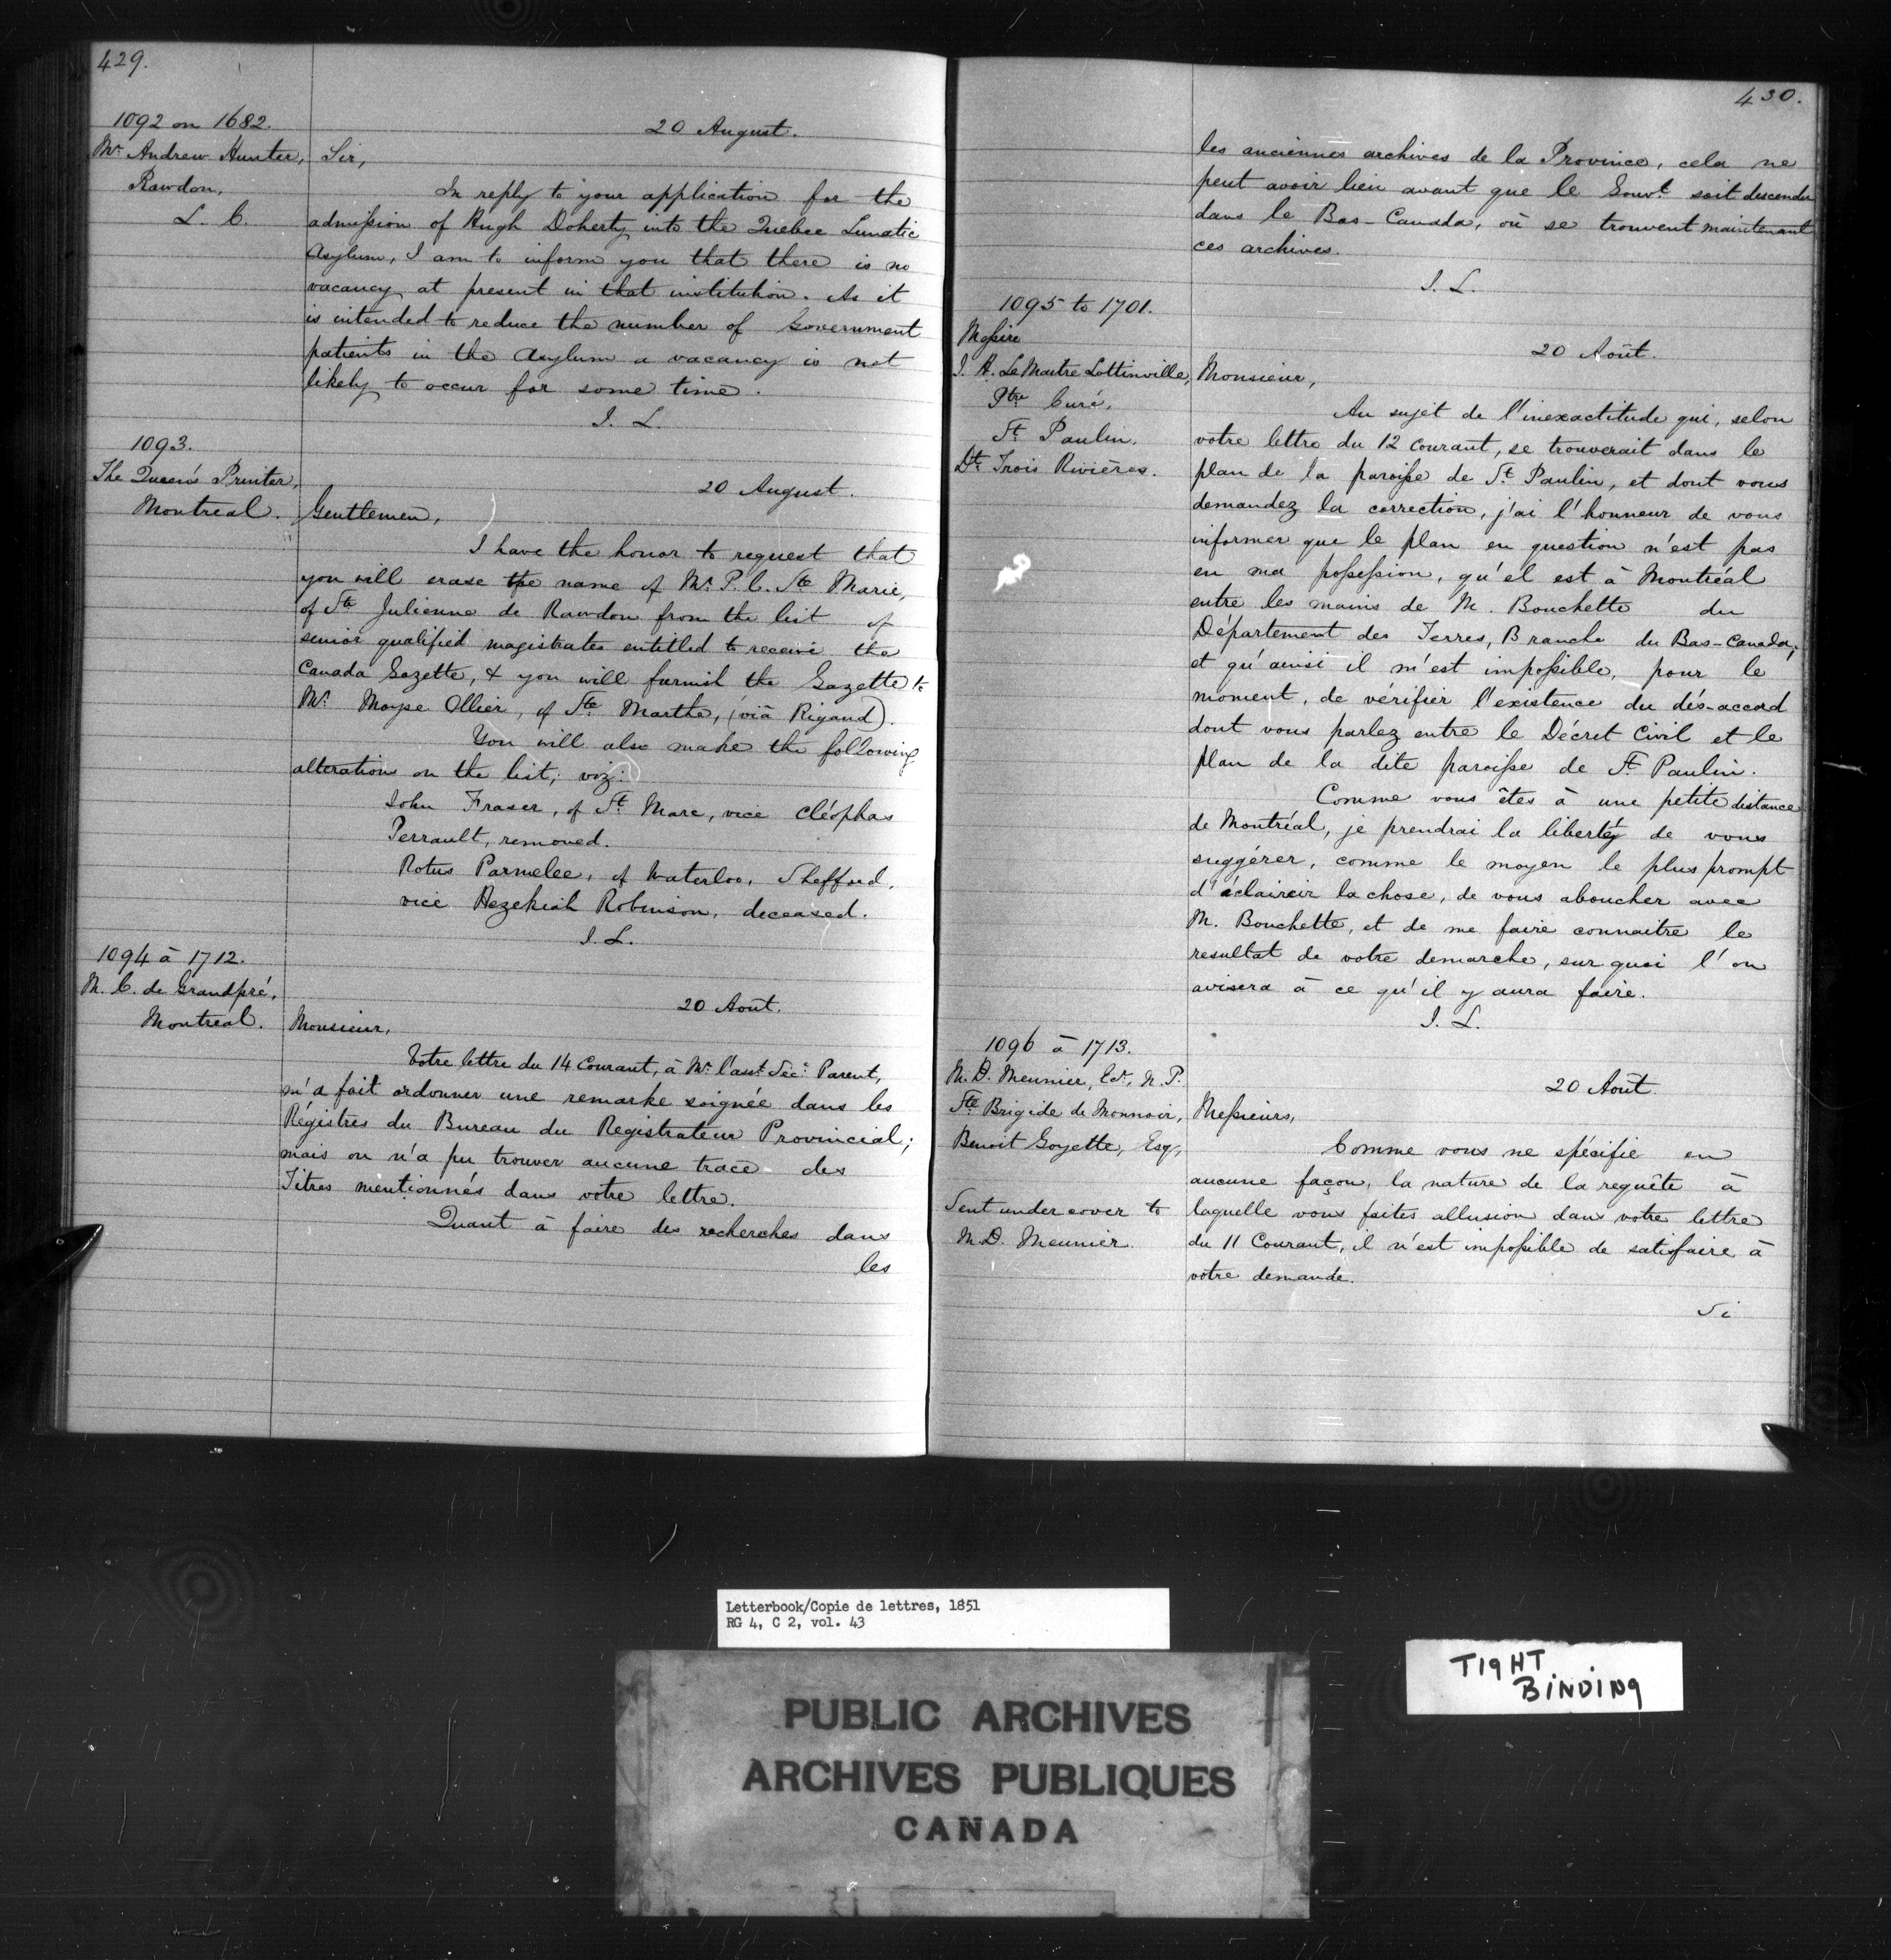 429.
1092 on 1682.
Mr. Andrew Hunter,
Rawdon,
L. C.
20 August.
Sir,
In reply to your application for the
admission of Hugh Doherty into the Quebec Lunatic
Asylum, I am to inform you that there is no
vacancy at present in that institution. As it
is intended to reduce the number of Government
patients in the Asylum a vacancy is not
likely to occur for some time.
J. L.
1093.
The Queen's Printer,
Montreal.
20 August.
Gentlemen,
I have the honor to request that
you will erase the name of Mr. P. C. Ste Marie,
of Ste Julienne de Rawdon from the list of
senior qualified magistrates entitled to receive the
Canada Gazette, & you will furnish the Gazette to
Mr. Moyse Ollier, of Ste Marthe, (viâ Rigaud).
You will also make the following
alterations on the list; viz:
John Fraser, of St. Marc, vice Cléophas
Perrault, removed.
Rotus Parmelee, of Waterloo, Shefford,
vice Hezekiah Robinson, deceased.
J. L.
1094 à 1712.
M. C. de Grandpré,
Montreal.
20 Aout.
Monsieur,
Votre lettre du 14 Courant, à Mr. l'asst. Sec: Parent,
m'a fait ordonner une remarke soignée dans les
Régistres du Bureau du Registrateur Provincial;
mais on n'a pu trouver aucune trace des
Titres mentionnés dans votre lettre.
Quant à faire des recherches dans
les
430.
les anciennes archives de la Province, cela ne
peut avoir lieu avant que le Gouvt. soit descendu
dans le Bas-Canada, où se trouvent maintenant
ces archives.
J. L.
1095 to 1701.
Messire
J. H. LeMaitre Lottinville,
Ptre Curé,
St. Paulin.
Dt. Trois Rivières.
20 Août.
Monsieur,
Au sujet de l'inexactitude qui, selon
votre lettre du 12 courant, se trouverait dans le
plan de la paroisse de St. Paulin, et dont vous
demandez la correction, j'ai l'honneur de vous
informer que le plan en question n'est pas
en ma possession, qu'el est à Montréal
entre les mains de M. Bouchette du
Département des Terres, Branche du Bas-Canada;
et qu'ainsi il m'est impossible, pour le
moment, de vérifier l'existence du dés-accord
dont vous parlez entre le Décret Civil et le
plan de la dite paroisse de St. Paulin.
Comme vous êtes à une petite distance
de Montréal, je prendrai la liberté de vous
suggérer, comme le moyen le plus prompt
d'éclaircir la chose, de vous aboucher avec
M. Bouchette, et de me faire connaitre le
resultat de votre demarche, sur quoi l'on
avisera à ce qu'il y aura faire.
J. L.
1096 à 1713.
M. D. Meunier, Ecr., N. P.
Ste Brigide de Monnoir,
Benoit Goyette, Esqr,
Sent under cover to
M. D. Meunier.
20 Août.
Messieurs,
Comme vous ne spécifie en
aucune façon, la nature de la requête à
laquelle vous faites allusion dans votre lettre
du 11 Courant, il n'est impossible de satisfaire à
votre demande.
Si
Letterbook/Copie de lettres, 1851
RG 4, C 2, vol. 43
TIGHT
BINDING
PUBLIC ARCHIVES
ARCHIVES PUBLIQUES
CANADA